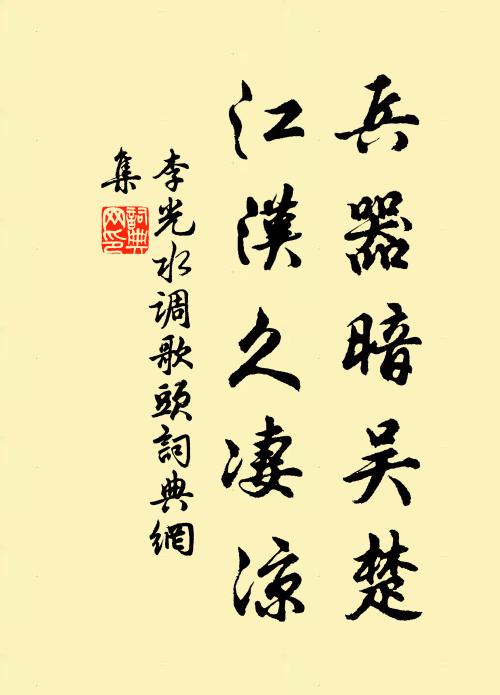 兵器暗吴楚
江漢久凄涼
李光水调歌頭詞典網
集
詞典
网印